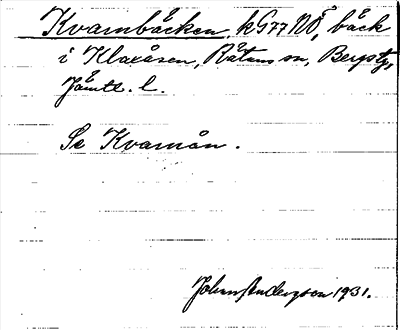 Kvarnbäcken, kG77NÖ, bäck
i Klaxåsen, Rätans sn, Bergs tg,
Jämtl. l.
Se Kvarnån.
Johan Anderzon 1931.